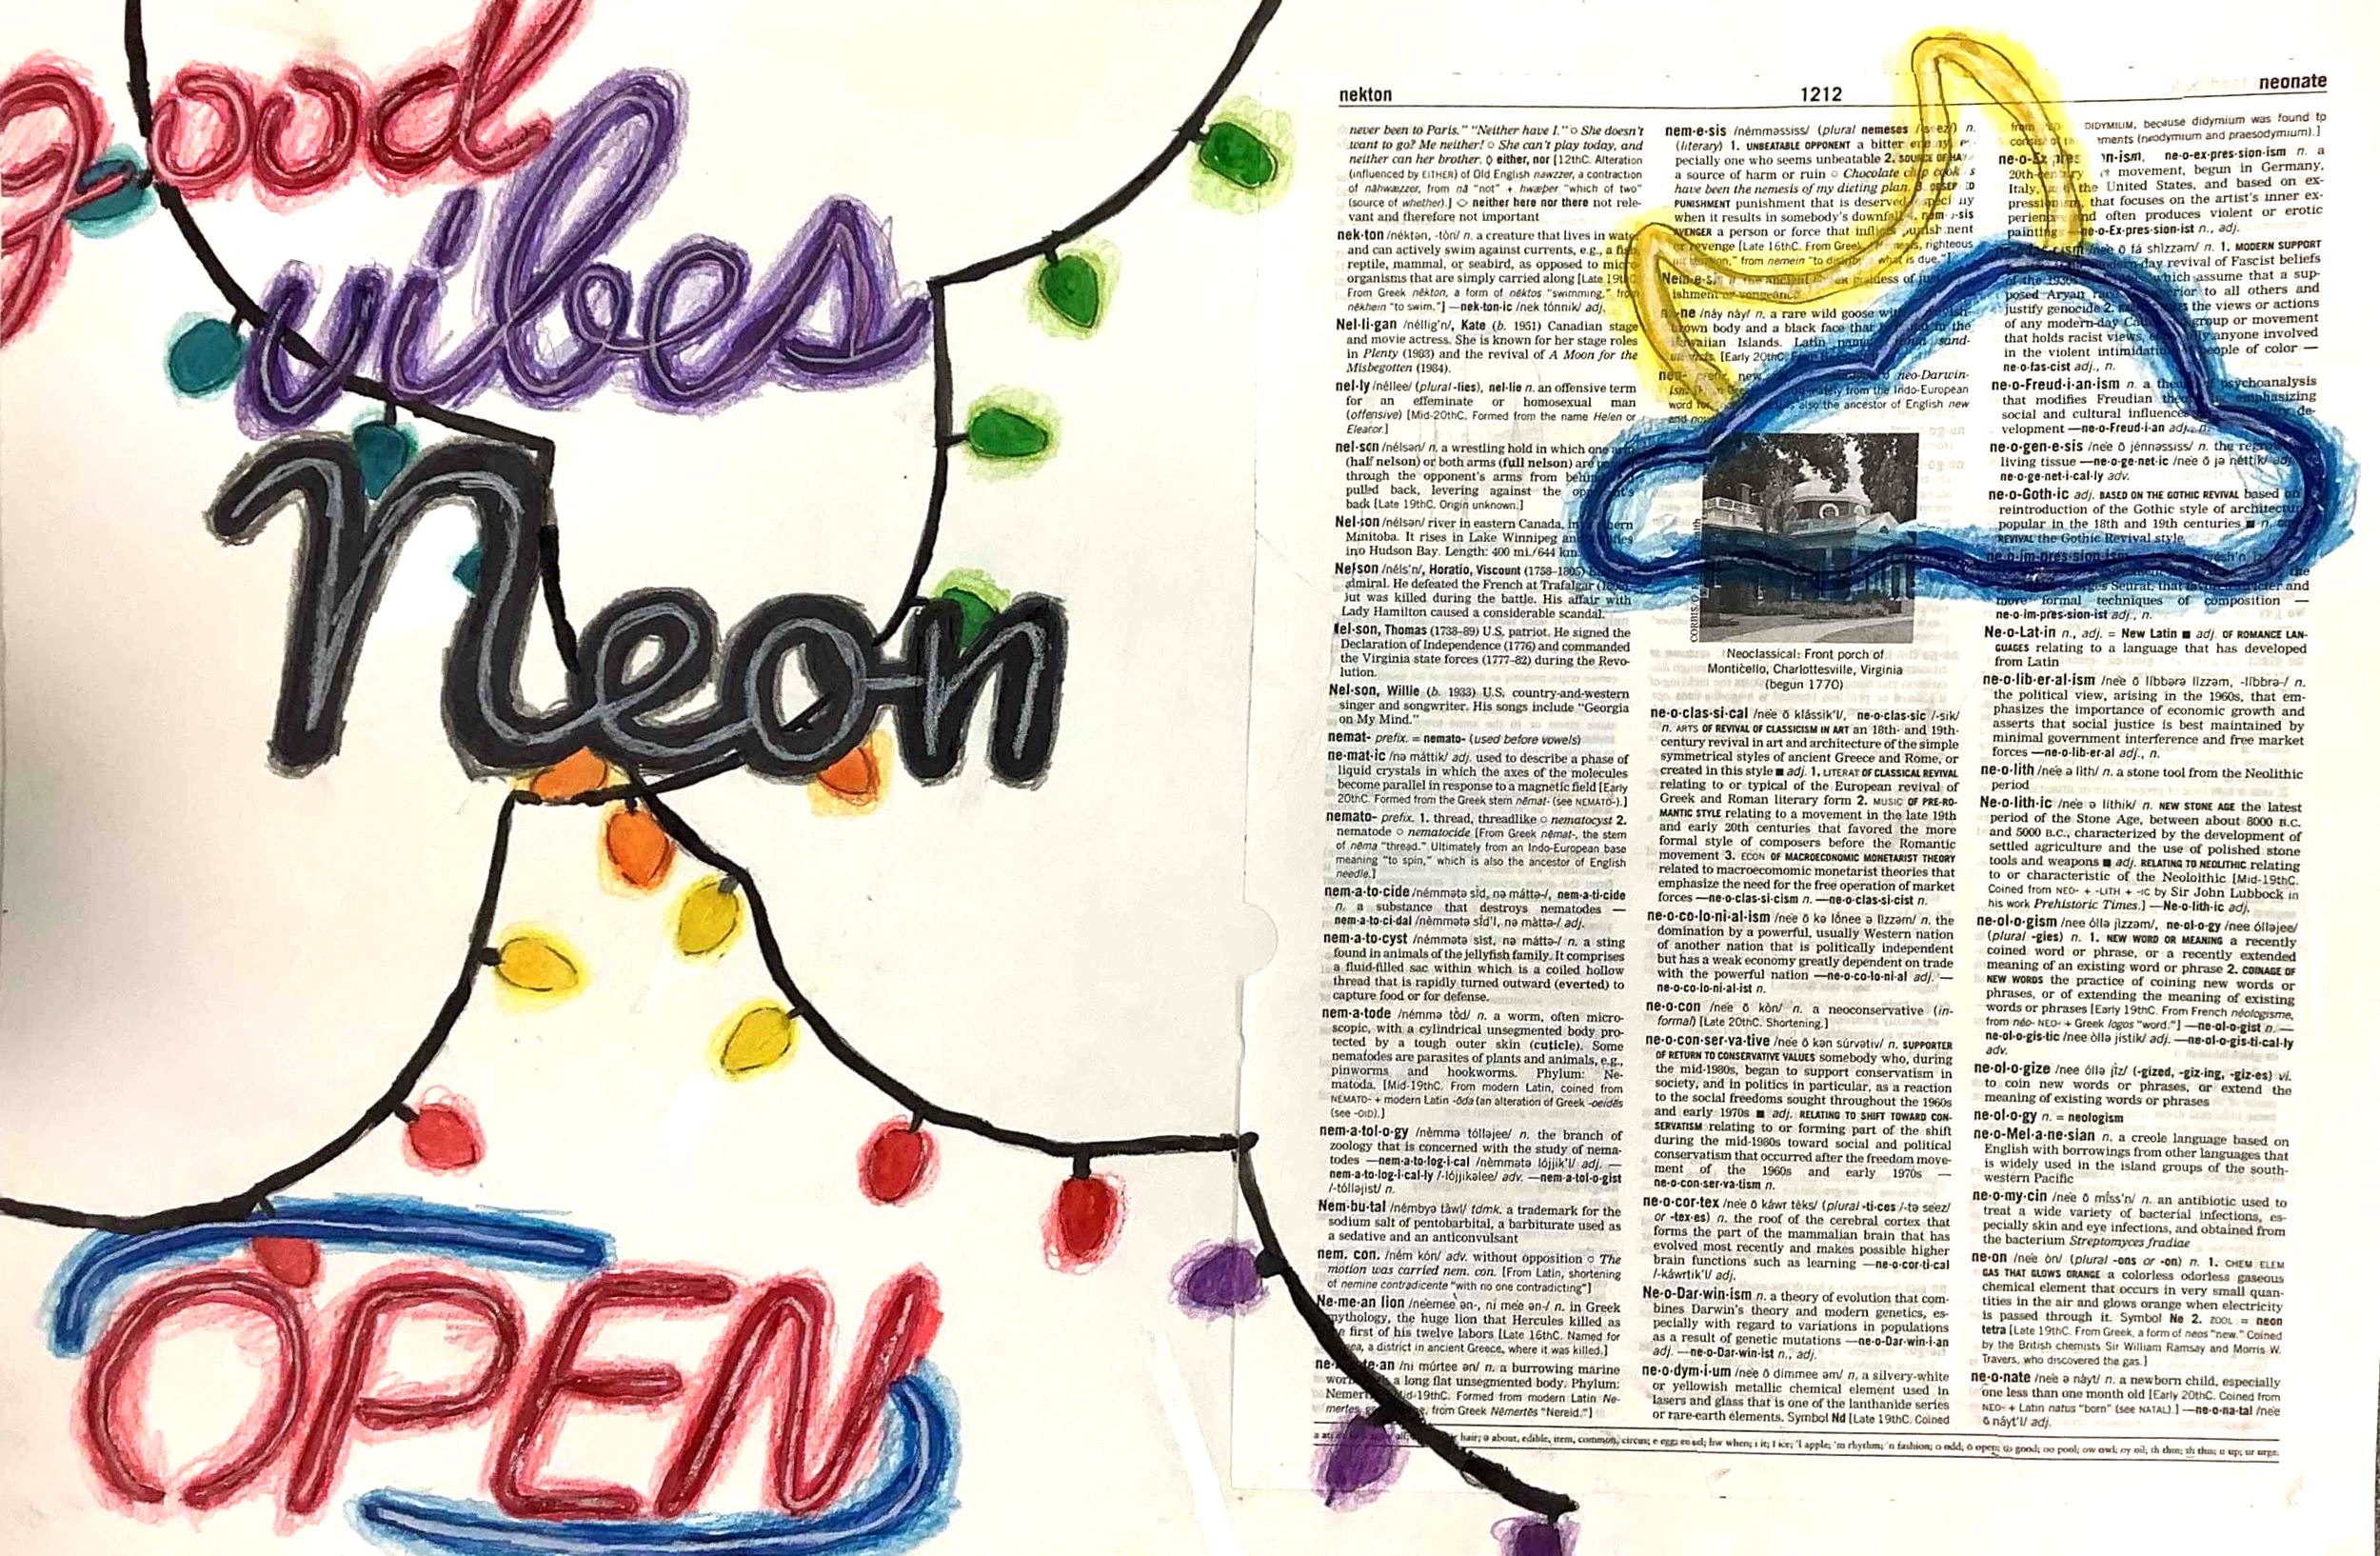 good
vibes
Neon
OPEN
nekton
1212
neonate
never been to Paris." "Neither have I." ○ She doesn't
want to go? Me neither! ○ She can't play today, and
neither can her brother. ◊ either, nor [12thC. Alteration
(influenced by EITHER) of Old English nawzzer, a contraction
of nāhwæzzer, from nā "not" + hwæþer "which of two"
(source of whether).] ◇ neither here nor there not rele-
vant and therefore not important
nek·ton /néktən, -tòn/ n. a creature that lives in
and can actively swim against currents, e.g., a
reptile, mammal, or seabird, as opposed to
organisms that are simply carried along [Late
From Greek nēkton, a form of nēktos "swimming,"
nēkhein "to swim."] —nek·ton·ic /nek tónnik/ adj.
Nel·li·gan /néllig'n/, Kate (b. 1951) Canadian stage
and movie actress. She is known for her stage roles
in Plenty (1983) and the revival of A Moon for the
Misbegotten (1984).
nel·ly /néllee/ (plural -lies), nel·lie n. an offensive term
for an effeminate or homosexual man
(offensive) [Mid-20thC. Formed from the name Helen or
Eleanor.]
nel·son /nélsən/ n. a wrestling hold in which one
(half nelson) or both arms (full nelson) are
through the opponent's arms from
pulled back, levering against the
back [Late 19thC. Origin unknown.]
Nel·son /nélsən/ river in eastern Canada, in
Manitoba. It rises in Lake Winnipeg and
into Hudson Bay. Length: 400 mi./644 km
Nelson /néls'n/, Horatio, Viscount (1758–1805)
admiral. He defeated the French at Trafalgar
but was killed during the battle. His affair with
Lady Hamilton caused a considerable scandal.
Nel·son, Thomas (1738–89) U.S. patriot. He signed the
Declaration of Independence (1776) and commanded
the Virginia state forces (1777–82) during the Revo-
lution.
Nel·son, Willie (b. 1933) U.S. country-and-western
singer and songwriter. His songs include "Georgia
on My Mind."
nemat- prefix. = nemato- (used before vowels)
ne·mat·ic /nə máttik/ adj. used to describe a phase of
liquid crystals in which the axes of the molecules
become parallel in response to a magnetic field [Early
20thC. Formed from the Greek stem nēmat- (see NEMATO-).]
nemato- prefix. 1. thread, threadlike ○ nematocyst 2.
nematode ○ nematocide [From Greek nēmat-, the stem
of nēma "thread." Ultimately from an Indo-European base
meaning "to spin," which is also the ancestor of English
needle.]
nem·a·to·cide /némmətə sìd, nə máttə-/, nem·a·ti·cide
n. a substance that destroys nematodes —
nem·a·to·ci·dal /nèmmətə sìd'l, nə màttə-/ adj.
nem·a·to·cyst /némmətə sist, nə máttə-/ n. a sting
found in animals of the jellyfish family. It comprises
a fluid-filled sac within which is a coiled hollow
thread that is rapidly turned outward (everted) to
capture food or for defense.
nem·a·tode /némmə tòd/ n. a worm, often micro-
scopic, with a cylindrical unsegmented body pro-
tected by a tough outer skin (cuticle). Some
nematodes are parasites of plants and animals, e.g.,
pinworms and hookworms. Phylum: Ne-
matoda. [Mid-19thC. From modern Latin, coined from
NEMATO- + modern Latin -oda (an alteration of Greek -oeidēs
(see -OID).]
nem·a·tol·o·gy /nèmmə tólləjee/ n. the branch of
zoology that is concerned with the study of nema-
todes —nem·a·to·log·i·cal /nèmmətə lójjik'l/ adj. —
nem·a·to·log·i·cal·ly /-lójjikəlee/ adv. —nem·a·tol·o·gist
/-tólləjist/ n.
Nem·bu·tal /némbyə tàwl/ tdmk. a trademark for the
sodium salt of pentobarbital, a barbiturate used as
a sedative and an anticonvulsant
nem. con. /ném kón/ adv. without opposition ○ The
motion was carried nem. con. [From Latin, shortening
of nemine contradicente "with no one contradicting"]
Ne·me·an lion /néemee ən-, ni mée ən-/ n. in Greek
mythology, the huge lion that Hercules killed as
first of his twelve labors [Late 16thC. Named for
a district in ancient Greece, where it was killed.]
/ni múrtee ən/ n. a burrowing marine
a long flat unsegmented body. Phylum:
Nemer 19thC. Formed from modern Latin Ne-
mertes from Greek Nēmertēs "Nereid."]
nem·e·sis /némməssiss/ (plural nemeses n.
(literary) 1. UNBEATABLE OPPONENT a bitter
pecially one who seems unbeatable 2. SOURCE OF
a source of harm or ruin ○ Chocolate chip
have been the nemesis of my dieting plan. 3.
PUNISHMENT punishment that is deserved,
when it results in somebody's downfall 4.
AVENGER a person or force that inflicts
or revenge [Late 16thC. From Greek righteous
from nemein "to what is due."]
Nem·e·sis
ne·ne /náy này/ n. a rare wild goose
brown body and a black face that the
Hawaiian Islands. Latin
[Early 20thC.
neo- prefix. new neo-Darwin-
from the Indo-European
word for also the ancestor of English new
CORBIS
Neoclassical: Front porch of
Monticello, Charlottesville, Virginia
(begun 1770)
ne·o·clas·si·cal /nèe ō klássik'l/, ne·o·clas·sic /-sik/
n. ARTS OF REVIVAL OF CLASSICISM IN ART an 18th- and 19th-
century revival in art and architecture of the simple
symmetrical styles of ancient Greece and Rome, or
created in this style ■ adj. 1. LITERAT OF CLASSICAL REVIVAL
relating to or typical of the European revival of
Greek and Roman literary form 2. MUSIC OF PRE-RO-
MANTIC STYLE relating to a movement in the late 19th
and early 20th centuries that favored the more
formal style of composers before the Romantic
movement 3. ECON OF MACROECONOMIC MONETARIST THEORY
related to macroecomomic monetarist theories that
emphasize the need for the free operation of market
forces —ne·o·clas·si·cism n. —ne·o·clas·si·cist n.
ne·o·co·lo·ni·al·ism /nèe ō kə lṓnee ə lìzzəm/ n. the
domination by a powerful, usually Western nation
of another nation that is politically independent
but has a weak economy greatly dependent on trade
with the powerful nation —ne·o·co·lo·ni·al adj. —
ne·o·co·lo·ni·al·ist n.
ne·o·con /nèe ō kón/ n. a neoconservative (in-
formal) [Late 20thC. Shortening.]
ne·o·con·ser·va·tive /nèe ō kən súrvətiv/ n. SUPPORTER
OF RETURN TO CONSERVATIVE VALUES somebody who, during
the mid-1980s, began to support conservatism in
society, and in politics in particular, as a reaction
to the social freedoms sought throughout the 1960s
and early 1970s ■ adj. RELATING TO SHIFT TOWARD CON-
SERVATISM relating to or forming part of the shift
during the mid-1980s toward social and political
conservatism that occurred after the freedom move-
ment of the 1960s and early 1970s —
ne·o·con·ser·va·tism n.
ne·o·cor·tex /nèe ō káwr tèks/ (plural -ti·ces /-tə sèez/
or -tex·es) n. the roof of the cerebral cortex that
forms the part of the mammalian brain that has
evolved most recently and makes possible higher
brain functions such as learning —ne·o·cor·ti·cal
/-káwrtik'l/ adj.
Ne·o·Dar·win·ism n. a theory of evolution that com-
bines Darwin's theory and modern genetics, es-
pecially with regard to variations in populations
as a result of genetic mutations —ne·o·Dar·win·i·an
adj. —ne·o·Dar·win·ist n., adj.
ne·o·dym·i·um /nèe ō dímmee əm/ n. a silvery-white
or yellowish metallic chemical element used in
lasers and glass that is one of the lanthanide series
or rare-earth elements. Symbol Nd [Late 19thC. Coined
DIDYMIUM, because didymium was found to
consist of ments (neodymium and praesodymium).]
ne·o·Ex·pres n·ism, ne·o·ex·pres·sion·ism n. a
20th-century movement, begun in Germany,
Italy, the United States, and based on ex-
pressionism, that focuses on the artist's inner ex-
perience and often produces violent or erotic
painting ne·o·Ex·pres·sion·ist n., adj.
/nèe ō fá shìzzəm/ n. 1. MODERN SUPPORT
day revival of Fascist beliefs
of the 1930s which assume that a sup-
posed Aryan race to all others and
justify genocide 2. the views or actions
of any modern-day group or movement
that holds racist views, anyone involved
in the violent intimidation people of color —
ne·o·fas·cist adj., n.
ne·o·Freud·i·an·ism n. a psychoanalysis
that modifies Freudian emphasizing
social and cultural influences de-
velopment —ne·o·Freud·i·an adj., n.
ne·o·gen·e·sis /nèe ō jénnəssiss/ n. the
living tissue —ne·o·ge·net·ic /nèe ō jə néttik/ adj.
ne·o·ge·net·i·cal·ly adv.
ne·o·Goth·ic adj. BASED ON THE GOTHIC REVIVAL based on
reintroduction of the Gothic style of architecture
popular in the 18th and 19th centuries ■ n.
REVIVAL the Gothic Revival style
ne·o·im·pres·sion·ism
Seurat, that and
more formal techniques of composition —
ne·o·im·pres·sion·ist adj., n.
Ne·o·Lat·in n., adj. = New Latin ■ adj. OF ROMANCE LAN-
GUAGES relating to a language that has developed
from Latin
ne·o·lib·er·al·ism /nèe ō líbbərə lìzzəm, -líbbrə-/ n.
the political view, arising in the 1960s, that em-
phasizes the importance of economic growth and
asserts that social justice is best maintained by
minimal government interference and free market
forces —ne·o·lib·er·al adj., n.
ne·o·lith /nèe ə lith/ n. a stone tool from the Neolithic
period
Ne·o·lith·ic /nèe ə líthik/ n. NEW STONE AGE the latest
period of the Stone Age, between about 8000 B.C.
and 5000 B.C., characterized by the development of
settled agriculture and the use of polished stone
tools and weapons ■ adj. RELATING TO NEOLITHIC relating
to or characteristic of the Neoloithic [Mid-19thC.
Coined from NEO- + -LITH + -IC by Sir John Lubbock in
his work Prehistoric Times.] —Ne·o·lith·ic adj.
ne·ol·o·gism /nee óllə jìzzəm/, ne·ol·o·gy /nee ólləjee/
(plural -gies) n. 1. NEW WORD OR MEANING a recently
coined word or phrase, or a recently extended
meaning of an existing word or phrase 2. COINAGE OF
NEW WORDS the practice of coining new words or
phrases, or of extending the meaning of existing
words or phrases [Early 19thC. From French néologisme,
from néo- NEO- + Greek logos "word."] —ne·ol·o·gist n. —
ne·ol·o·gis·tic /nee òllə jístik/ adj. —ne·ol·o·gis·ti·cal·ly
adv.
ne·ol·o·gize /nee óllə jìz/ (-gized, -giz·ing, -giz·es) vi.
to coin new words or phrases, or extend the
meaning of existing words or phrases
ne·ol·o·gy n. = neologism
ne·o·Mel·a·ne·sian n. a creole language based on
English with borrowings from other languages that
is widely used in the island groups of the south-
western Pacific
ne·o·my·cin /nèe ō míss'n/ n. an antibiotic used to
treat a wide variety of bacterial infections, es-
pecially skin and eye infections, and obtained from
the bacterium Streptomyces fradiae
ne·on /nèe òn/ (plural -ons or -on) n. 1. CHEM ELEM
GAS THAT GLOWS ORANGE a colorless odorless gaseous
chemical element that occurs in very small quan-
tities in the air and glows orange when electricity
is passed through it. Symbol Ne 2. ZOOL = neon
tetra [Late 19thC. From Greek, a form of neos "new." Coined
by the British chemists Sir William Ramsay and Morris W.
Travers, who discovered the gas.]
ne·o·nate /nèe ə nàyt/ n. a newborn child, especially
one less than one month old [Early 20thC. Coined from
NEO- + Latin natus "born" (see NATAL).] —ne·o·na·tal /nèe
ō náyt'l/ adj.
hair; ə about, edible, item, common, circus; e egg; ee eel; hw when; i it; ī ice; 'l apple; 'm rhythm; 'n fashion; o odd; ō open; o͝o good; oo pool; ow owl; oy oil; th thin; th this; u up; ur urge.